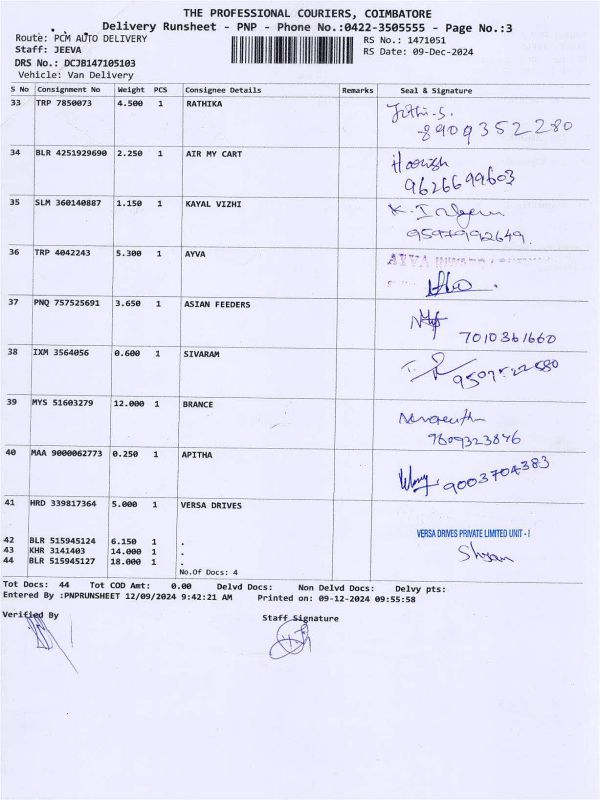 THE PROFESSIONAL COURIERS, COIMBATORE
Delivery Runsheet - PNP - Phone No.:0422-3505555 - Page No.:3
Route: PCM AUTO DELIVERY
RS No.: 1471051
Staff: JEEVA
RS Date: 09-Dec-2024
DRS No.: DCJB147105103
Vehicle: Van Delivery
S No Consignment No Weight PCS Consignee Details Remarks Seal & Signature
33 TRP 7850073 4.500 1 RATHIKA
8909352280
34 BLR 4251929690 2.250 1 AIR MY CART
9626699603
35 SLM 360140887 1.150 1 KAYAL VIZHI
36 TRP 4042243 5.300 1 AYVA AYVA
37 PNQ 757525691 3.650 1 ASIAN FEEDERS
7010361660
38 IXM 3564056 0.600 1 SIVARAM
39 MYS 51603279 12.000 1 BRANCE
9809323846
40 MAA 9000062773 0.250 1 APITHA
9003704383
41 HRD 339817364 5.000 1 VERSA DRIVES
VERSA DRIVES PRIVATE LIMITED UNIT - I
42 BLR 515945124 6.150 1 .
43 KHR 3141403 14.000 1 .
44 BLR 515945127 18.000 1 .
No.Of Docs: 4
Tot Docs: 44 Tot COD Amt: 0.00 Delvd Docs: Non Delvd Docs: Delvy pts:
Entered By :PNPRUNSHEET 12/09/2024 9:42:21 AM Printed on: 09-12-2024 09:55:58
Verified By Staff Signature